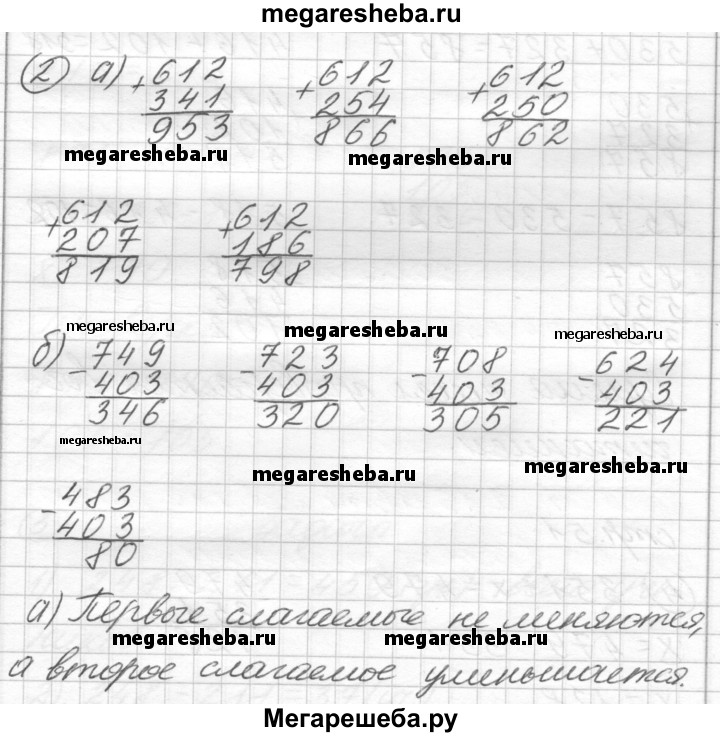 megaresheba.ru
2 а) +612 +612 +612
341 254 250
953 866 862
megaresheba.ru megaresheba.ru
+612 +612
207 186
819 798
megaresheba.ru megaresheba.ru megaresheba.ru
б) -749 -723 -708 -624
403 403 403 403
346 320 305 221
megaresheba.ru megaresheba.ru megaresheba.ru
-483
403
80
а) Первые слагаемые не меняются,
megaresheba.ru megaresheba.ru
а второе слагаемое уменьшается.
Мегарешеба.ру